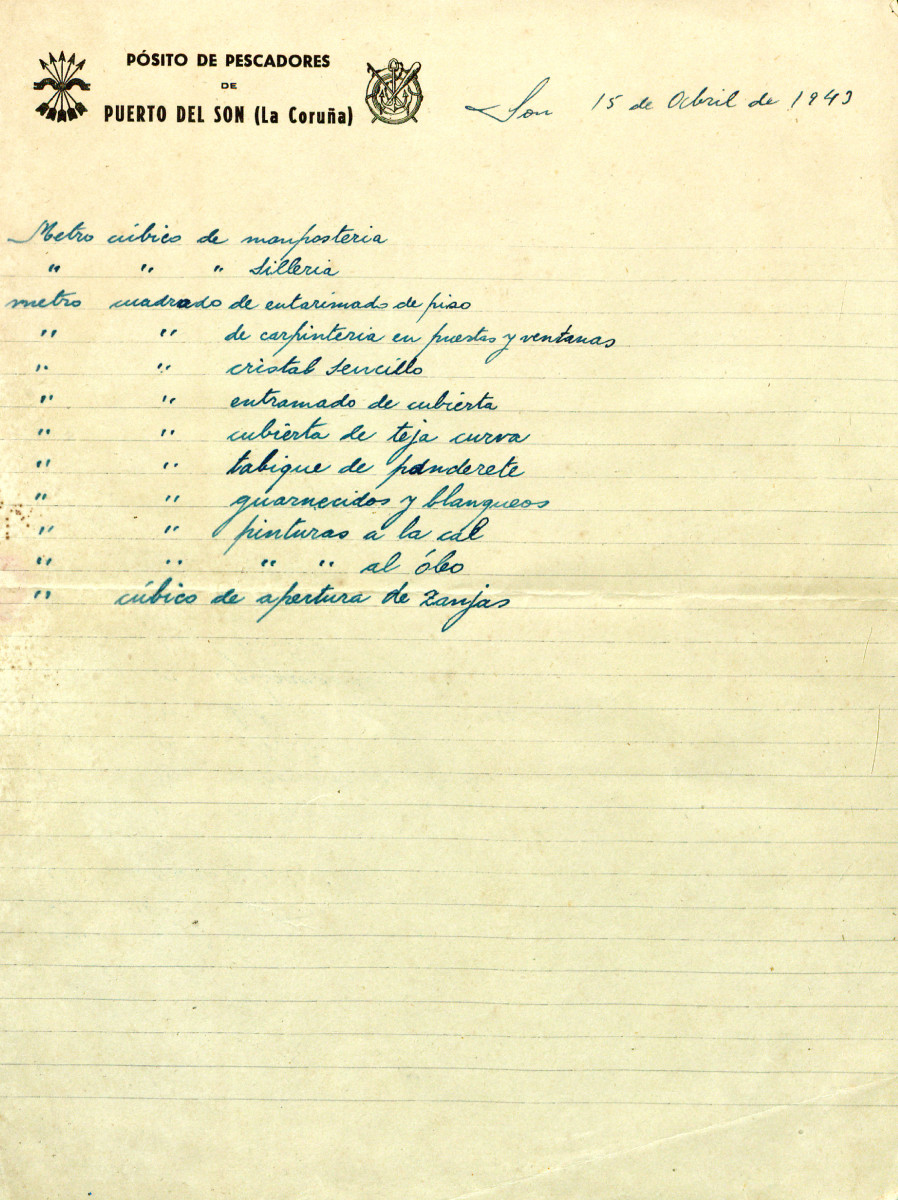 PÓSITO DE PESCADORES
DE
PUERTO DEL SON (La Coruña)
Son 15 de Abril de 1943
Metro cúbico de manposteria
" " " Silleria
metro cuadrado de entarimado de piso
" " de carpinteria en puertas y ventanas
" " cristal sencillo
" " entramado de cubierta
" " cubierta de teja curva
" " tabique de panderete
" " guarnecidos y blanqueos
" " pinturas a la cal
" " " " al óleo
" cúbico de apertura de zanjas